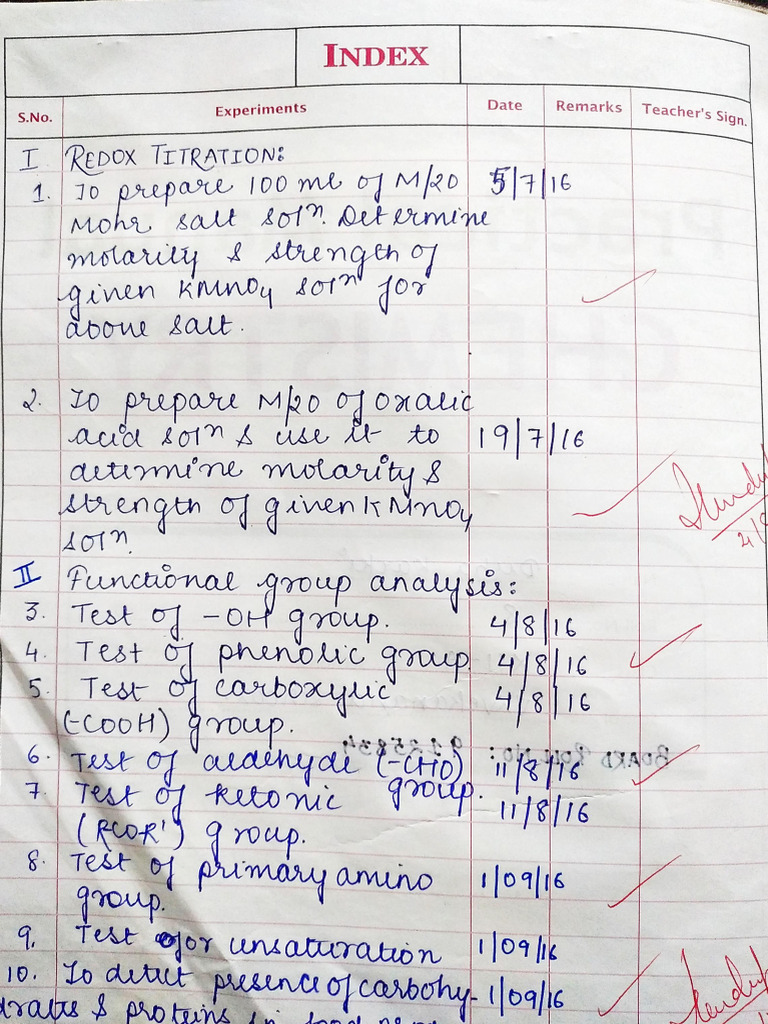 INDEX
S.No. Experiments Date Remarks Teacher's Sign.
I REDOX TITRATION:
1. To prepare 100 ml of M/20 5/7/16
Mohr salt solⁿ. Determine
molarity & strength of
given KMnO4 solⁿ for
above salt.
2. To prepare M/20 of oxalic
acid solⁿ & use it to 19/7/16
determine molarity &
strength of given KMnO4
solⁿ.
II Functional group analysis:
3. Test of -OH group. 4/8/16
4. Test of phenolic group 4/8/16
5. Test of carboxylic 4/8/16
(-COOH) group.
6. Test of aldehyde (-CHO) 11/8/16
group.
7. Test of ketonic 11/8/16
(RCOR') group.
8. Test of primary amino 1/09/16
group.
9. Test for unsaturation 1/09/16
10. To detect presence of carbohy- 1/09/16
drates & proteins in food